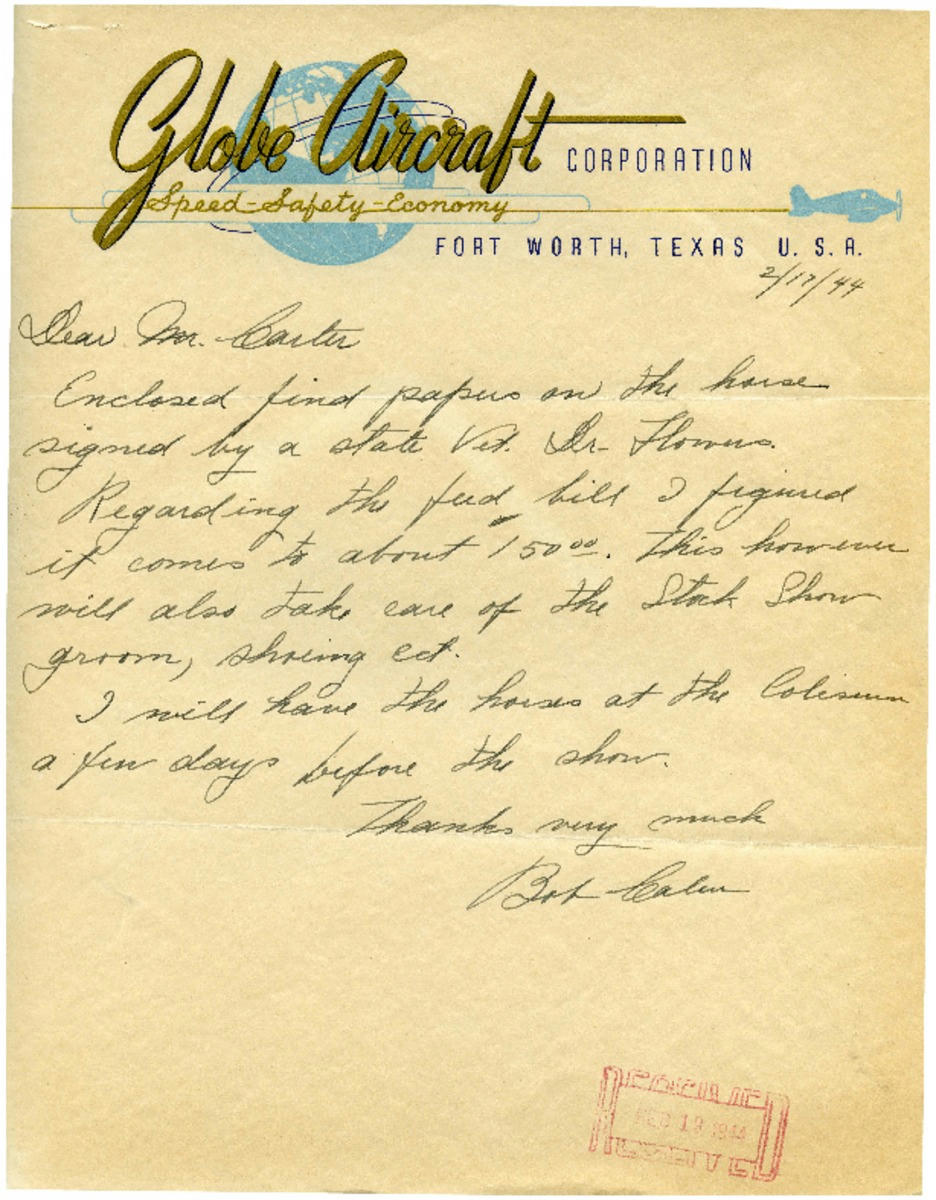 Globe Aircraft CORPORATION
Speed-Safety-Economy
FORT WORTH, TEXAS U. S. A.
2/17/44
Dear Mr. Carter
Enclosed find papers on the horse
signed by a state Vet. Dr. Flowers.
Regarding the feed bill I figured
it comes to about 150 00. This however
will also take care of the Stock Show
groom, shoeing ect.
I will have the horses at the Coliseum
a few days before the show.
Thanks very much
Bob
FEB 19 1944